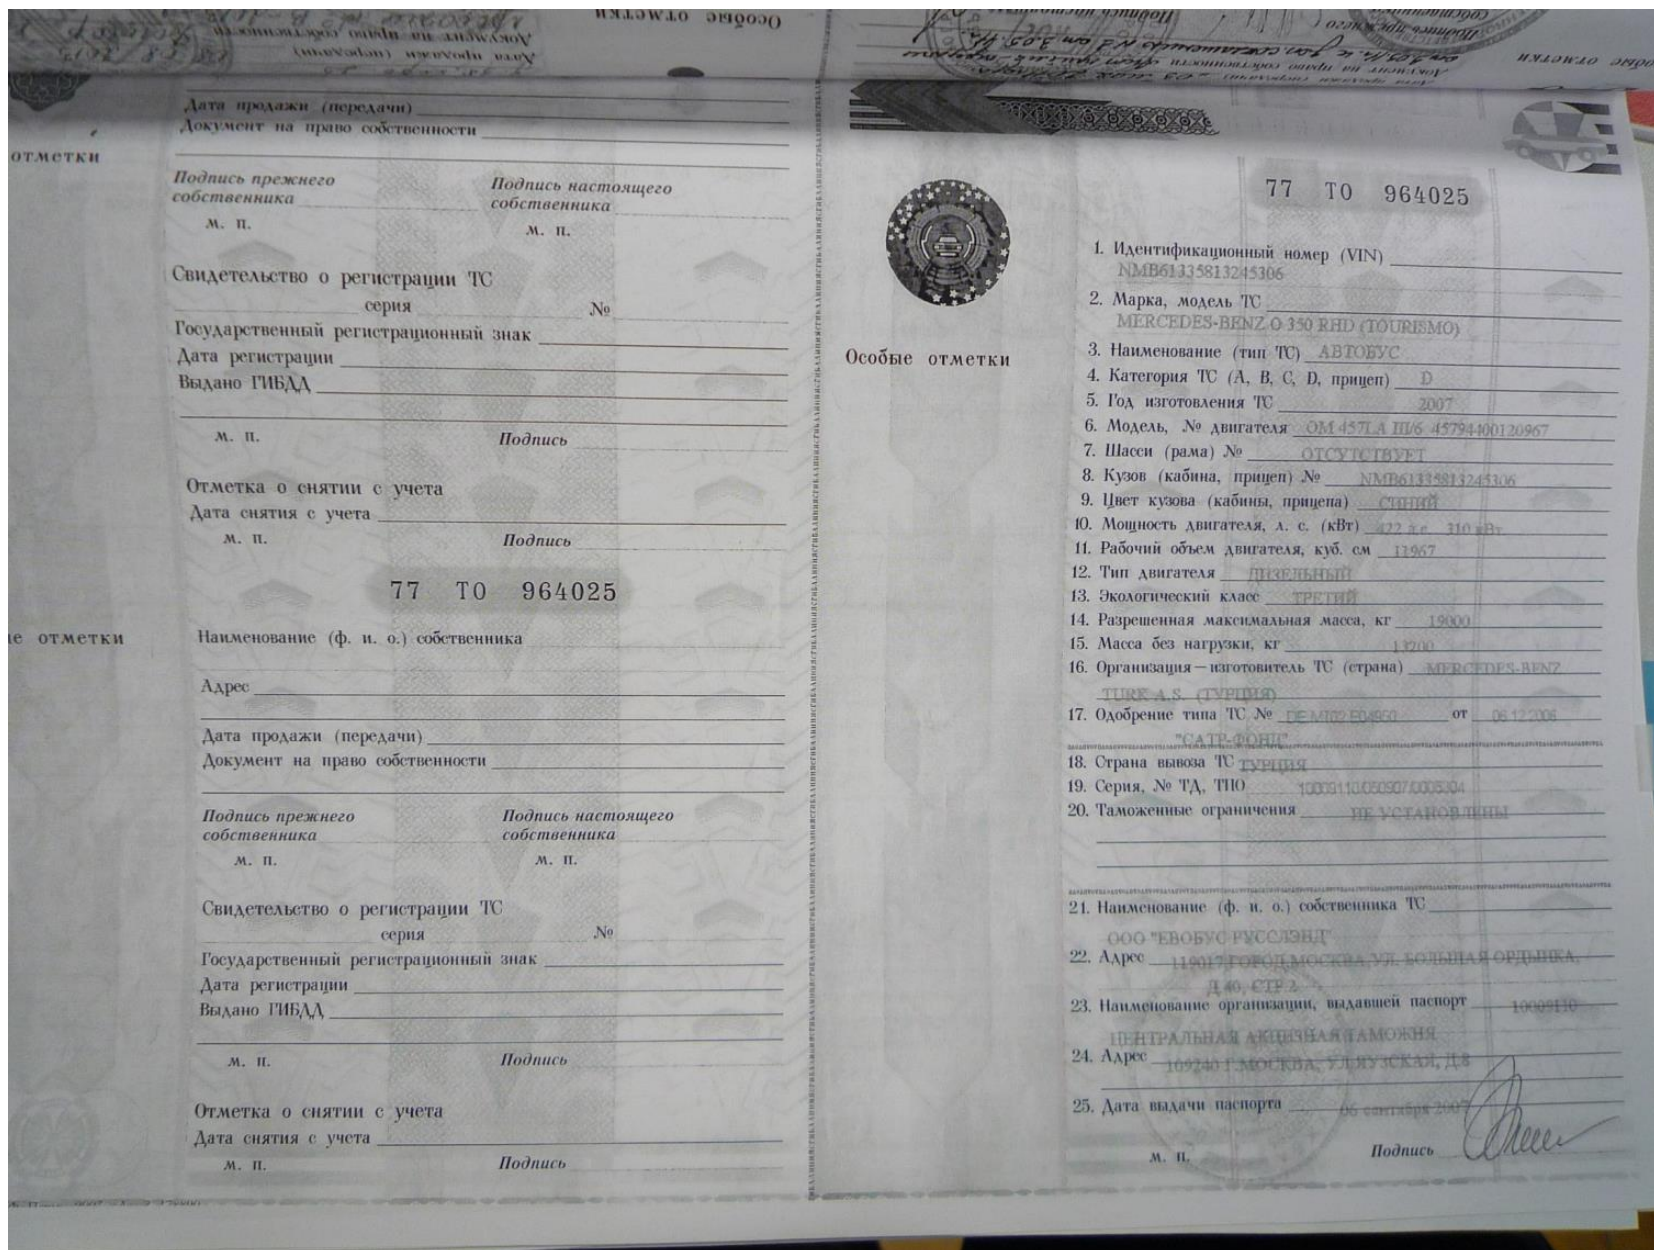 Особые отметки
Дата продажи (передачи)
Документ на право собственности
отметки
Дата продажи (передачи)
Документ на право собственности
Подпись прежнего собственника
Подпись настоящего собственника
м. п.
м. п.
Свидетельство о регистрации ТС
серия №
Государственный регистрационный знак
Дата регистрации
Выдано ГИБДД
м. п. Подпись
Отметка о снятии с учета
Дата снятия с учета
м. п. Подпись
77 ТО 964025
отметки
Наименование (ф. и. о.) собственника
Адрес
Дата продажи (передачи)
Документ на право собственности
Подпись прежнего собственника
Подпись настоящего собственника
м. п. м. п.
Свидетельство о регистрации ТС
серия №
Государственный регистрационный знак
Дата регистрации
Выдано ГИБДД
м. п. Подпись
Отметка о снятии с учета
Дата снятия с учета
м. п. Подпись
Особые отметки
77 ТО 964025
1. Идентификационный номер (VIN)
NMB61335813245306
2. Марка, модель ТС
MERCEDES-BENZ O 350 RHD (TOURISMO)
3. Наименование (тип ТС) АВТОБУС
4. Категория ТС (А, В, С, D, прицеп) D
5. Год изготовления ТС 2007
6. Модель, № двигателя OM 457LA III/6 45794400120967
7. Шасси (рама) № ОТСУТСТВУЕТ
8. Кузов (кабина, прицеп) № NMB61335813245306
9. Цвет кузова (кабины, прицепа) СИНИЙ
10. Мощность двигателя, л. с. (кВт) 422 л.с. 310 кВт
11. Рабочий объем двигателя, куб. см 11967
12. Тип двигателя ДИЗЕЛЬНЫЙ
13. Экологический класс ТРЕТИЙ
14. Разрешенная максимальная масса, кг 19000
15. Масса без нагрузки, кг 13200
16. Организация—изготовитель ТС (страна) MERCEDES-BENZ
TURK A.S. (ТУРЦИЯ)
17. Одобрение типа ТС № от 06.12.2006
"САТР-ФОНД"
18. Страна вывоза ТС ТУРЦИЯ
19. Серия, № ТД, ТПО
20. Таможенные ограничения НЕ УСТАНОВЛЕНЫ
21. Наименование (ф. и. о.) собственника ТС
ООО "ЕВОБУС РУССЛЭНД"
22. Адрес 119017, ГОРОД МОСКВА, УЛ. БОЛЬШАЯ ОРДЫНКА,
Д.40, СТР.2
23. Наименование организации, выдавшей паспорт 10009110
ЦЕНТРАЛЬНАЯ АКЦИЗНАЯ ТАМОЖНЯ
24. Адрес 109240 Г.МОСКВА, УЛ.ЯУЗСКАЯ, Д.8
25. Дата выдачи паспорта 06 сентября 2007
м. п. Подпись